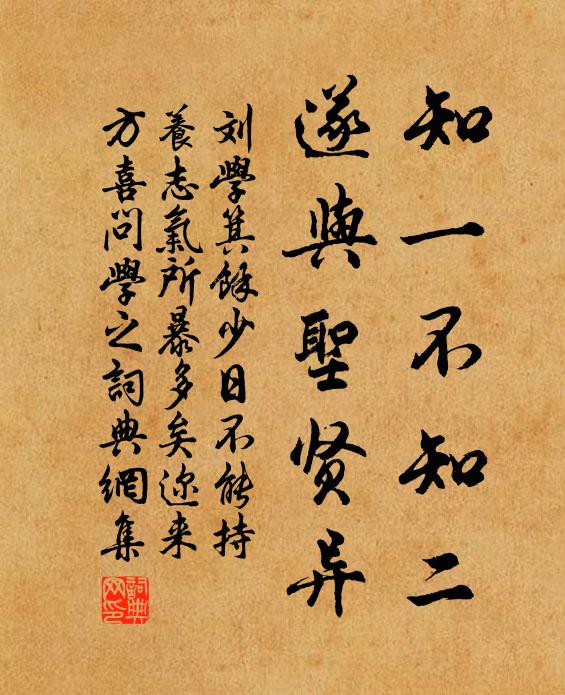 知一不知二
遂與聖贤异
刘學箕餘少日不能持
養志氣所暴多矣迩来
方喜问學之詞典網集
詞典
网印